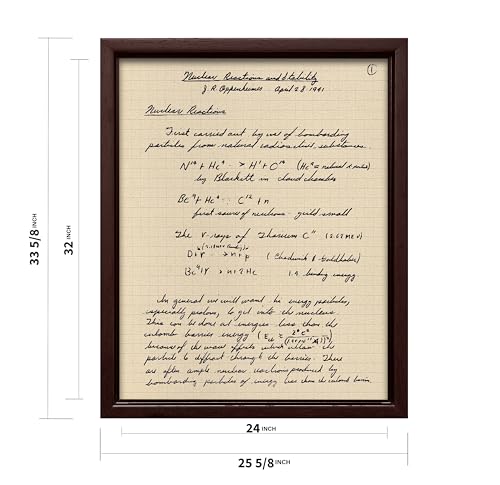 33 5/8 INCH
32 INCH
①
Nuclear Reactions and Stability
J. R. Oppenheimer April 28 1941
Nuclear Reactions
First carried out by use of bombarding
particles from natural radioactive substances.
N¹⁴ + He⁴ -> H¹ + O¹⁷ (He⁴ = natural α
by Blackett in cloud chamber
Be⁹ + He⁴ C¹² + n
first source of neutrons - yield small
The γ-rays of Thorium C" (2.62 MEV)
D + γ -> n + p (Chadwick & Goldhaber)
Be⁹ + γ -> n + 2 He 1.7 binding energy
In general we will want hi energy particles,
especially protons, to get into the nucleus.
This can be done at energies less than the
coulomb barrier energy
because of the wave effects which allow the
particle to diffract through the barrier. There
are often ample nuclear reactions produced by
bombarding particles of energy less than the coulomb barrier.
24 INCH
25 5/8 INCH